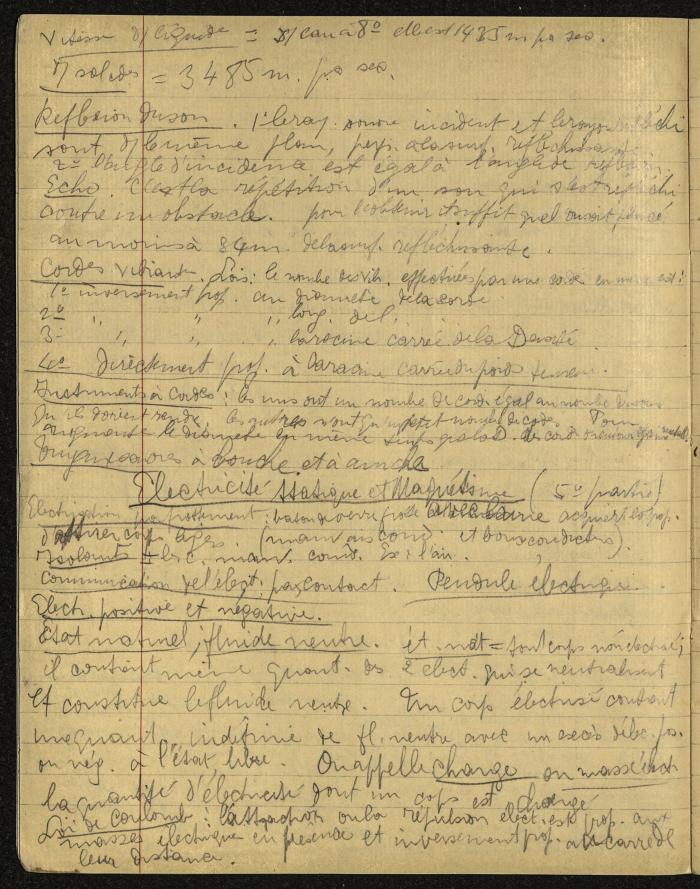 Vitesse d/ liquide = d/ l'eau à 8° elle est 1435 m par sec.
d/ solides = 3485 m. par sec.
Réflexion du son. 1° le ray. sonore incident et le rayon réfléchi
sont d/ le même plan, perp. à la surf. réfléchissante
2° l'angle d'incidence est égal à l'angle de réflexion
Echo. C'est la répétition d'un son qui s'est réfléchi
contre un obstacle. pour l'obtenir il suffit quel
au moins à 34 m. de la surf. réfléchissante.
Cordes vibrantes. Lois: le nombre des vib. effectuées par une corde en est:
1° inversement prop. au diamètre de la corde
2° " " " long. de l
3° " " " la racine carrée de la Densité
4° Directement prop. à la racine carrée du poids tenseur.
Instruments à Cordes: les uns ont un nombre de cordes égal au nombre de sons
qu'ils doivent rendre, les autres n'ont qu'un petit nombre de cordes. Pour
augmente le diamètre en même temps
Tuyaux sonores à bouche et à anche
Electricité statique et Magnétisme (5e partie)
Electrisation par frottement: baton de verre frotté avec acquiert la prop.
d'attirer corps légers. (mauvais cond. et bons conducteurs).
Isolants = les c. mauv. cond. Ex: l'air.
Communication de l'élect. par contact. Pendule électrique.
Elect. positive et négative.
Etat naturel, fluide neutre. ét. nat = tout corps non électrisé;
il contient même quant. des 2 élect. qui se neutralisent
et constitue le fluide neutre. Un corps électrisé contient
une quant. indéfinie de fl. neutre avec un excès d'élec. pos.
ou nég. à l'état libre. On appelle charge ou masse élect.
la quantité d'électricité dont un corps est chargé
Loi de Coulomb: l'attraction ou la répulsion elect. est prop. aux
masses électrique en présence et inversement prop. au carré de
leur distance.